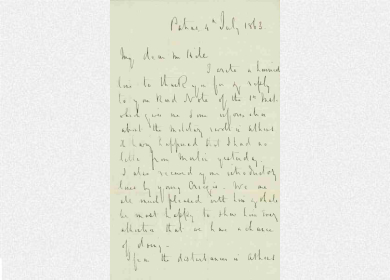 Patras 4th July 1863
My dear Mr Hole
I write a hurried
line to thank you for my reply
to your kind Note of the 1st Inst
which gives me some information
about the Military revolt in Athens
I have happened but I had no
letter from Merlin yesterday
I also received your introductory
lines by young We are
all much pleased with him & shall
be most happy to show him every
attention that we have a chance
of doing.
From the disturbances in Athens